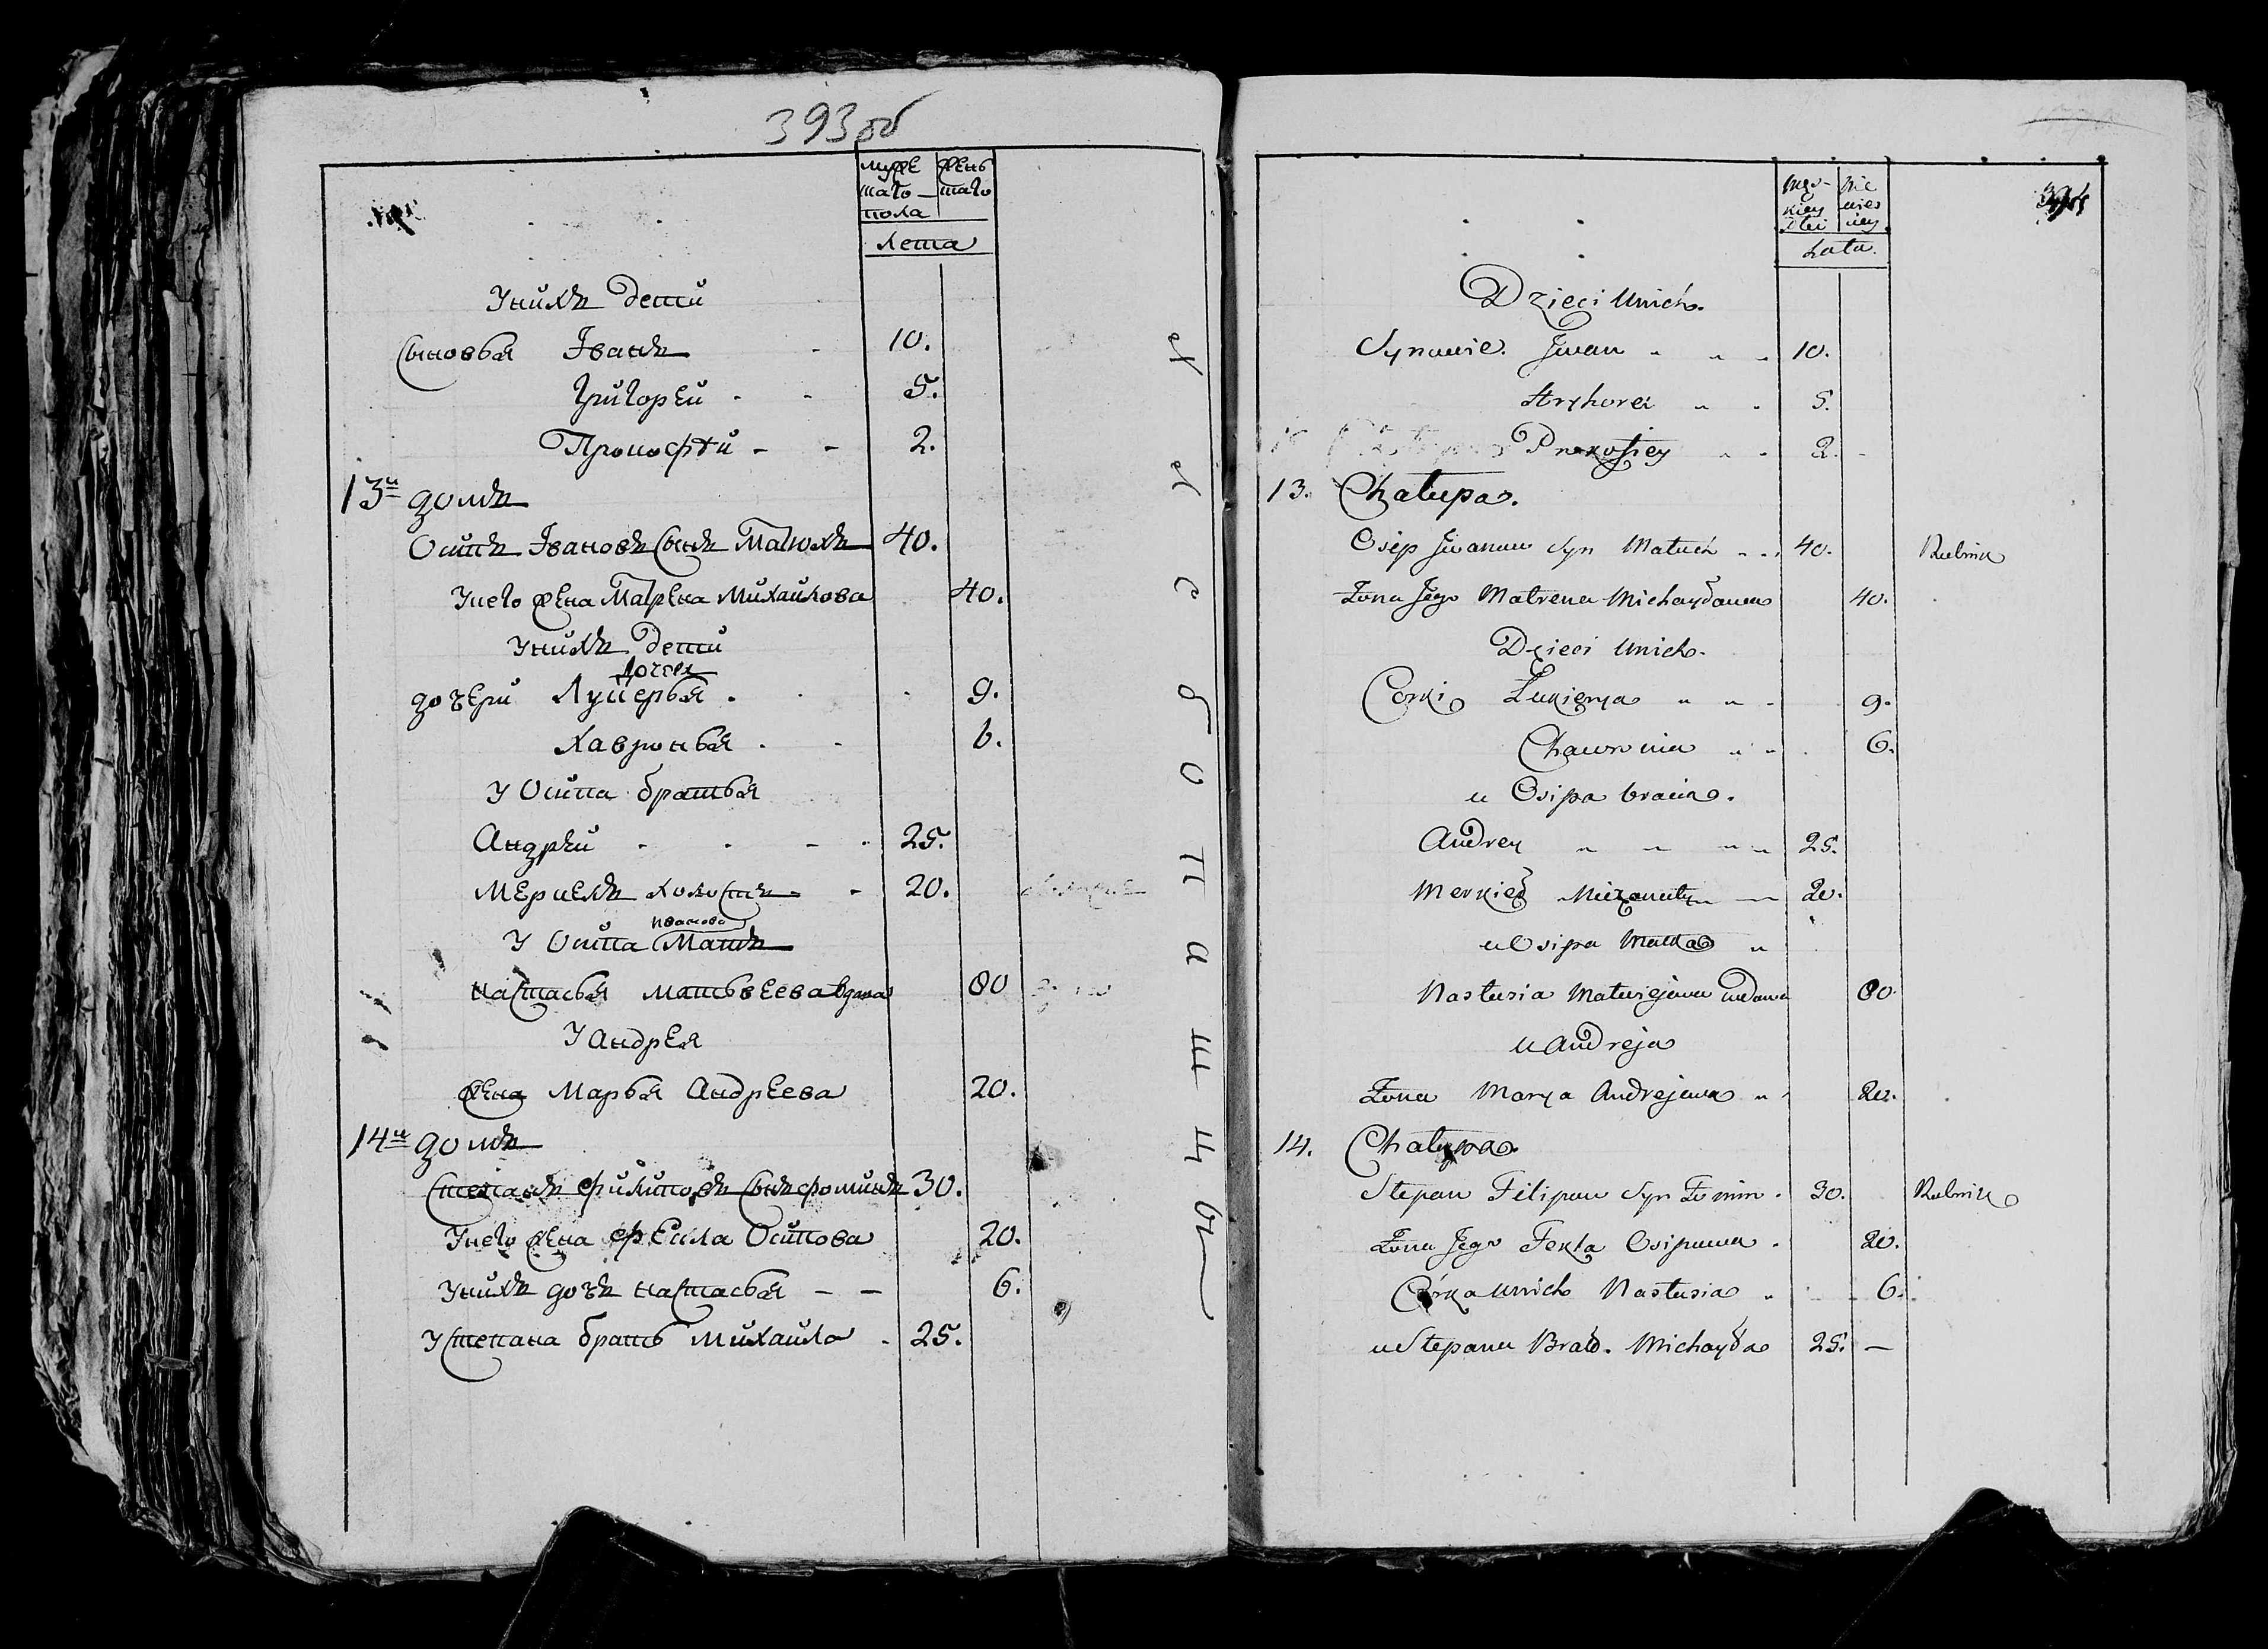 393 об
муже
ска҃го
пола
жень
ска҃го
лета
У нихъ дети
Сыновья Іванъ 10.
Григорей 5.
Прокофѣй 2.
13й домъ
Осипъ Івановъ Сынъ Матюхъ 40.
У него жена Матрена Михайлова 40.
У нихъ дети
дочери Лукерья 9.
Хавронья 6.
У Осипа братья
Андрей 25.
Меркелъ холостъ 20.
Иванова
У Осипа Мать
Настасья Матвеева вдова 80
У Андрея
жена Марья Андреева 20.
14й домъ
Степанъ Филиповъ Сынъ Фоминъ 30.
У него жена Фекла Осипова 20.
У нихъ дочь Настасья 6.
У Степана братъ Михайла 25.
Lata.
Dzieci Unich.
Synowie. Jwan 10.
Hryhorei 5.
Prokofiey 2.
13. Chalupa.
Osip Jwanow Syn Matuch 40. Rolnik
Żona Jego Matrena Michayłowa 40.
Dzieci Unich.
Corki Łukierya 9.
Chawronia 6.
u Osipa bracia.
Andrey 25.
Merkieł Nieżonaty 20.
u Osipa Matka
Nastusia Matwiejewa wdowa 80
u Andreja
Żona Marya Andrejewa 20.
14. Chalupa.
Stepan Filipow Syn Fomin 30. Rolnik
Żona Jego Fekla Osipowa 20.
Córka Unich Nastusia 6.
u Stepana Brat. Michayła 25. —